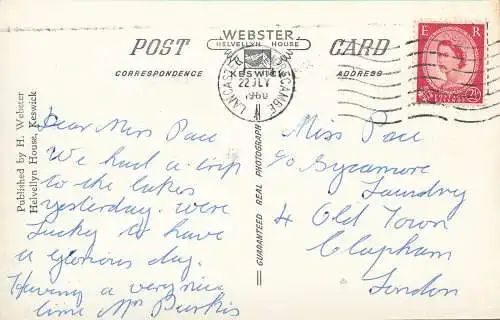 WEBSTER
HELVELLYN HOUSE
KESWICK
POST CARD
CORRESPONDENCE
ADDRESS
E R
2½
LANCASTER MORECAMBE
22 JLY
1960
Published by H. Webster
Helvellyn House, Keswick
GUARANTEED REAL PHOTOGRAPH
Dear Miss Pace
We had a trip
to the lakes
yesterday. Were
lucky to have
a glorious day.
Having a very nice
time Mrs Burkis
Miss Pace
c/o Sycamore
Laundry
4 Old Town
Clapham
London